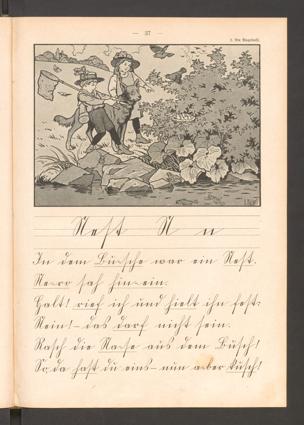 — 37 —
Nest N n
In dem Bu-sche war ein Nest.
Ne-ro sah hin-ein.
Halt! rief ich und hielt ihn fest:
Nein! - das darf nicht sein.
Rasch die Na-se aus dem Busch!
So, da hast du eins - nun a-ber kusch!